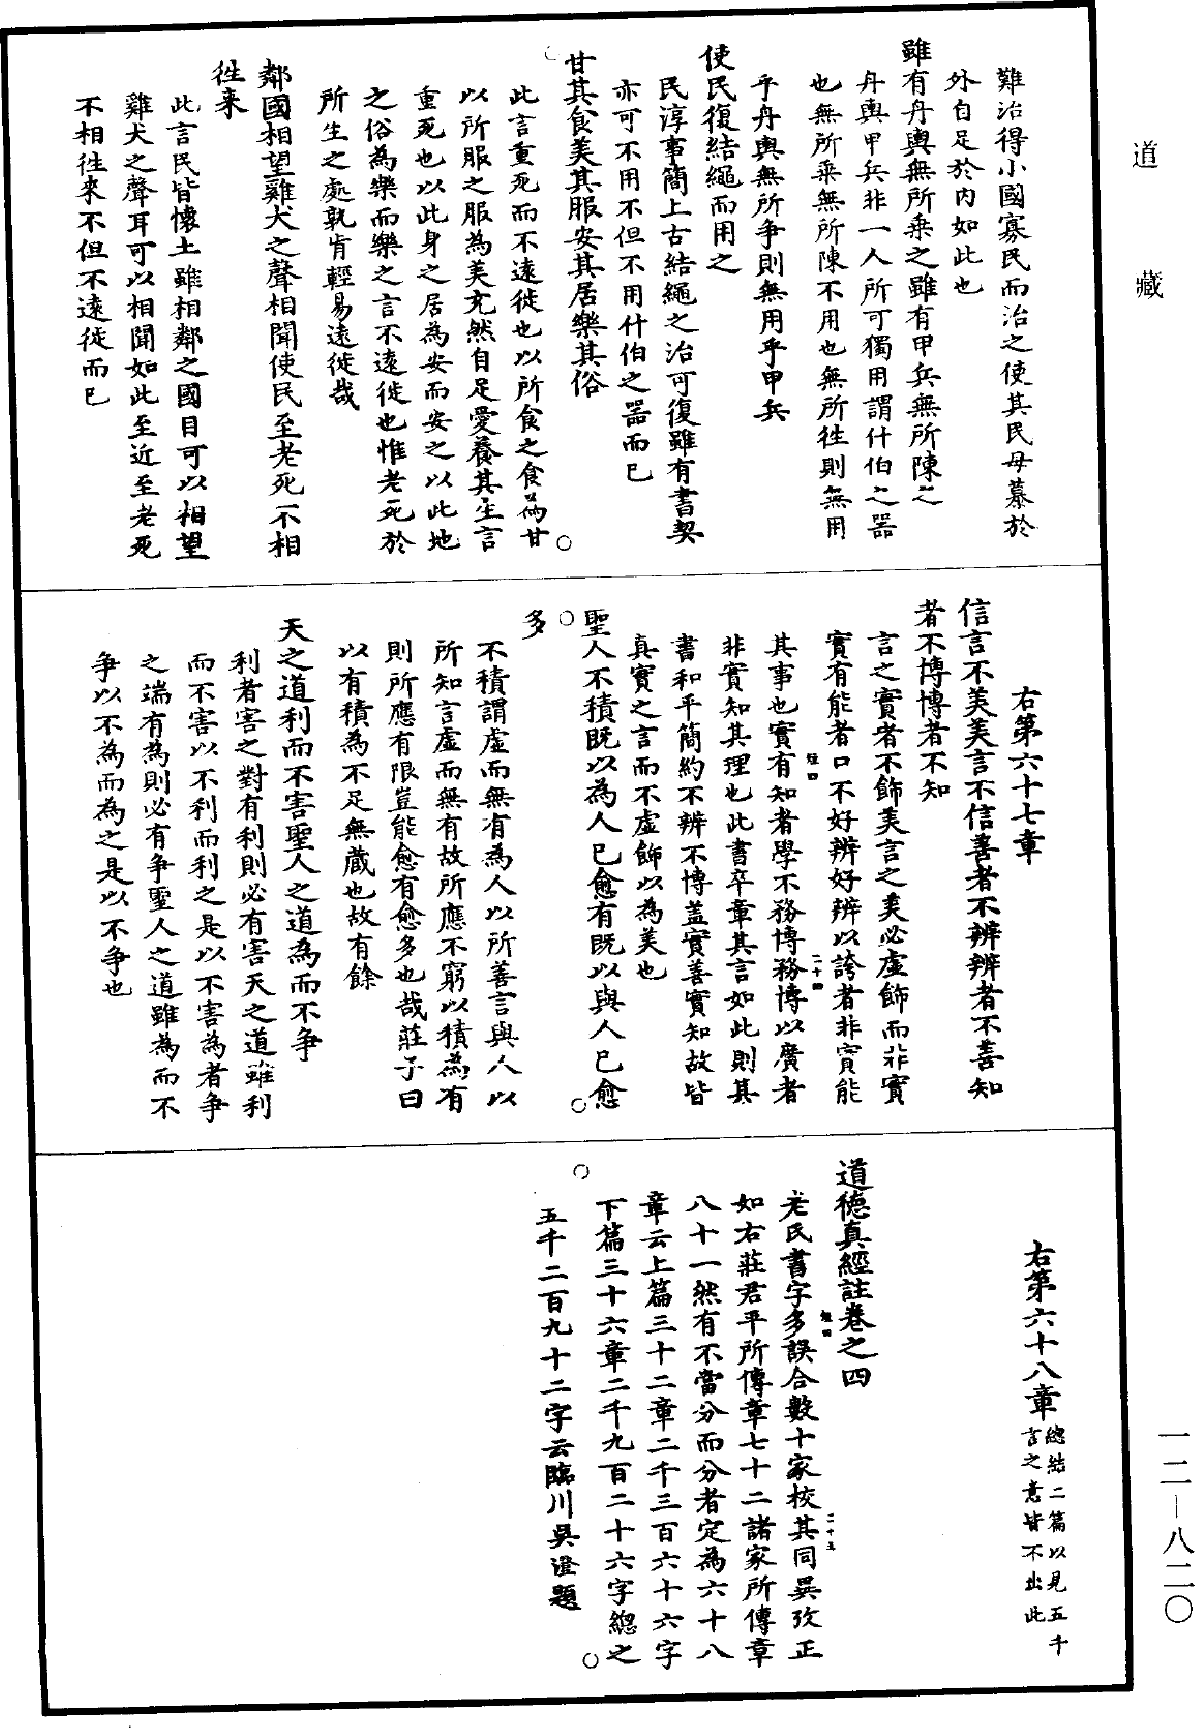 道藏
難治得小國寡民而治之使其民毋慕於
外自足於内如此也
雖有舟輿無所乘之雖有甲兵無所陳之
舟輿甲兵非一人所可獨用謂什伯之器
也無所乘無所陳不用也無所徃則無用
乎舟輿無所争則無用乎甲兵
使民復結繩而用之
民淳事簡上古結繩之治可復雖有書契
亦可不用不但不用什伯之器而已
甘其食美其服安其居樂其俗
此言重死而不遠徙也以所食之食為甘
以所服之服為美充然自足愛養其生言
重死也以此身之居為安而安之以此地
之俗為樂而樂之言不遠徙也惟老死於
所生之處孰肯輕易遠徙哉
鄰國相望雞犬之聲相聞使民至老死不相
徃来
此言民皆懷土雖相鄰之國目可以相望
雞犬之聲耳可以相聞如此至近至老死
不相徃来不但不遠徙而已
右第六十七章
信言不美美言不信善者不辨辨者不善知
者不博博者不知
言之實者不飾美言之美必虛飾而非實
實有能者口不好辨好辨以誇者非實能
其事也實有知者學不務博務博以廣者
非實知其理也此書卒章其言如此則其
書和平簡約不辨不博盖實善實知故皆
真實之言而不虛飾以為美也
聖人不積既以為人已愈有既以與人已愈
多
不積謂虛而無有為人以所善言與人以
所知言虛而無有故所應不窮以積為有
則所應有限豈能愈有愈多也哉莊子曰
以有積為不足無藏也故有餘
天之道利而不害聖人之道為而不争
利者害之對有利則必有害天之道雖利
而不害以不利而利之是以不害為者争
之端有為則必有争聖人之道雖為而不
争以不為而為之是以不争也
右第六十八章 總結二篇以見五千
言之意皆不出此
道德真經註卷之四
老氏書字多誤合數十家校其同異攷正
如右莊君平所傳章七十二諸家所傳章
八十一然有不當分而分者定為六十八
章云上篇三十二章二千三百六十六字
下篇三十六章二千九百二十六字總之
五千二百九十二字云臨川吳澄題
二十四
二十五
一二－八二〇